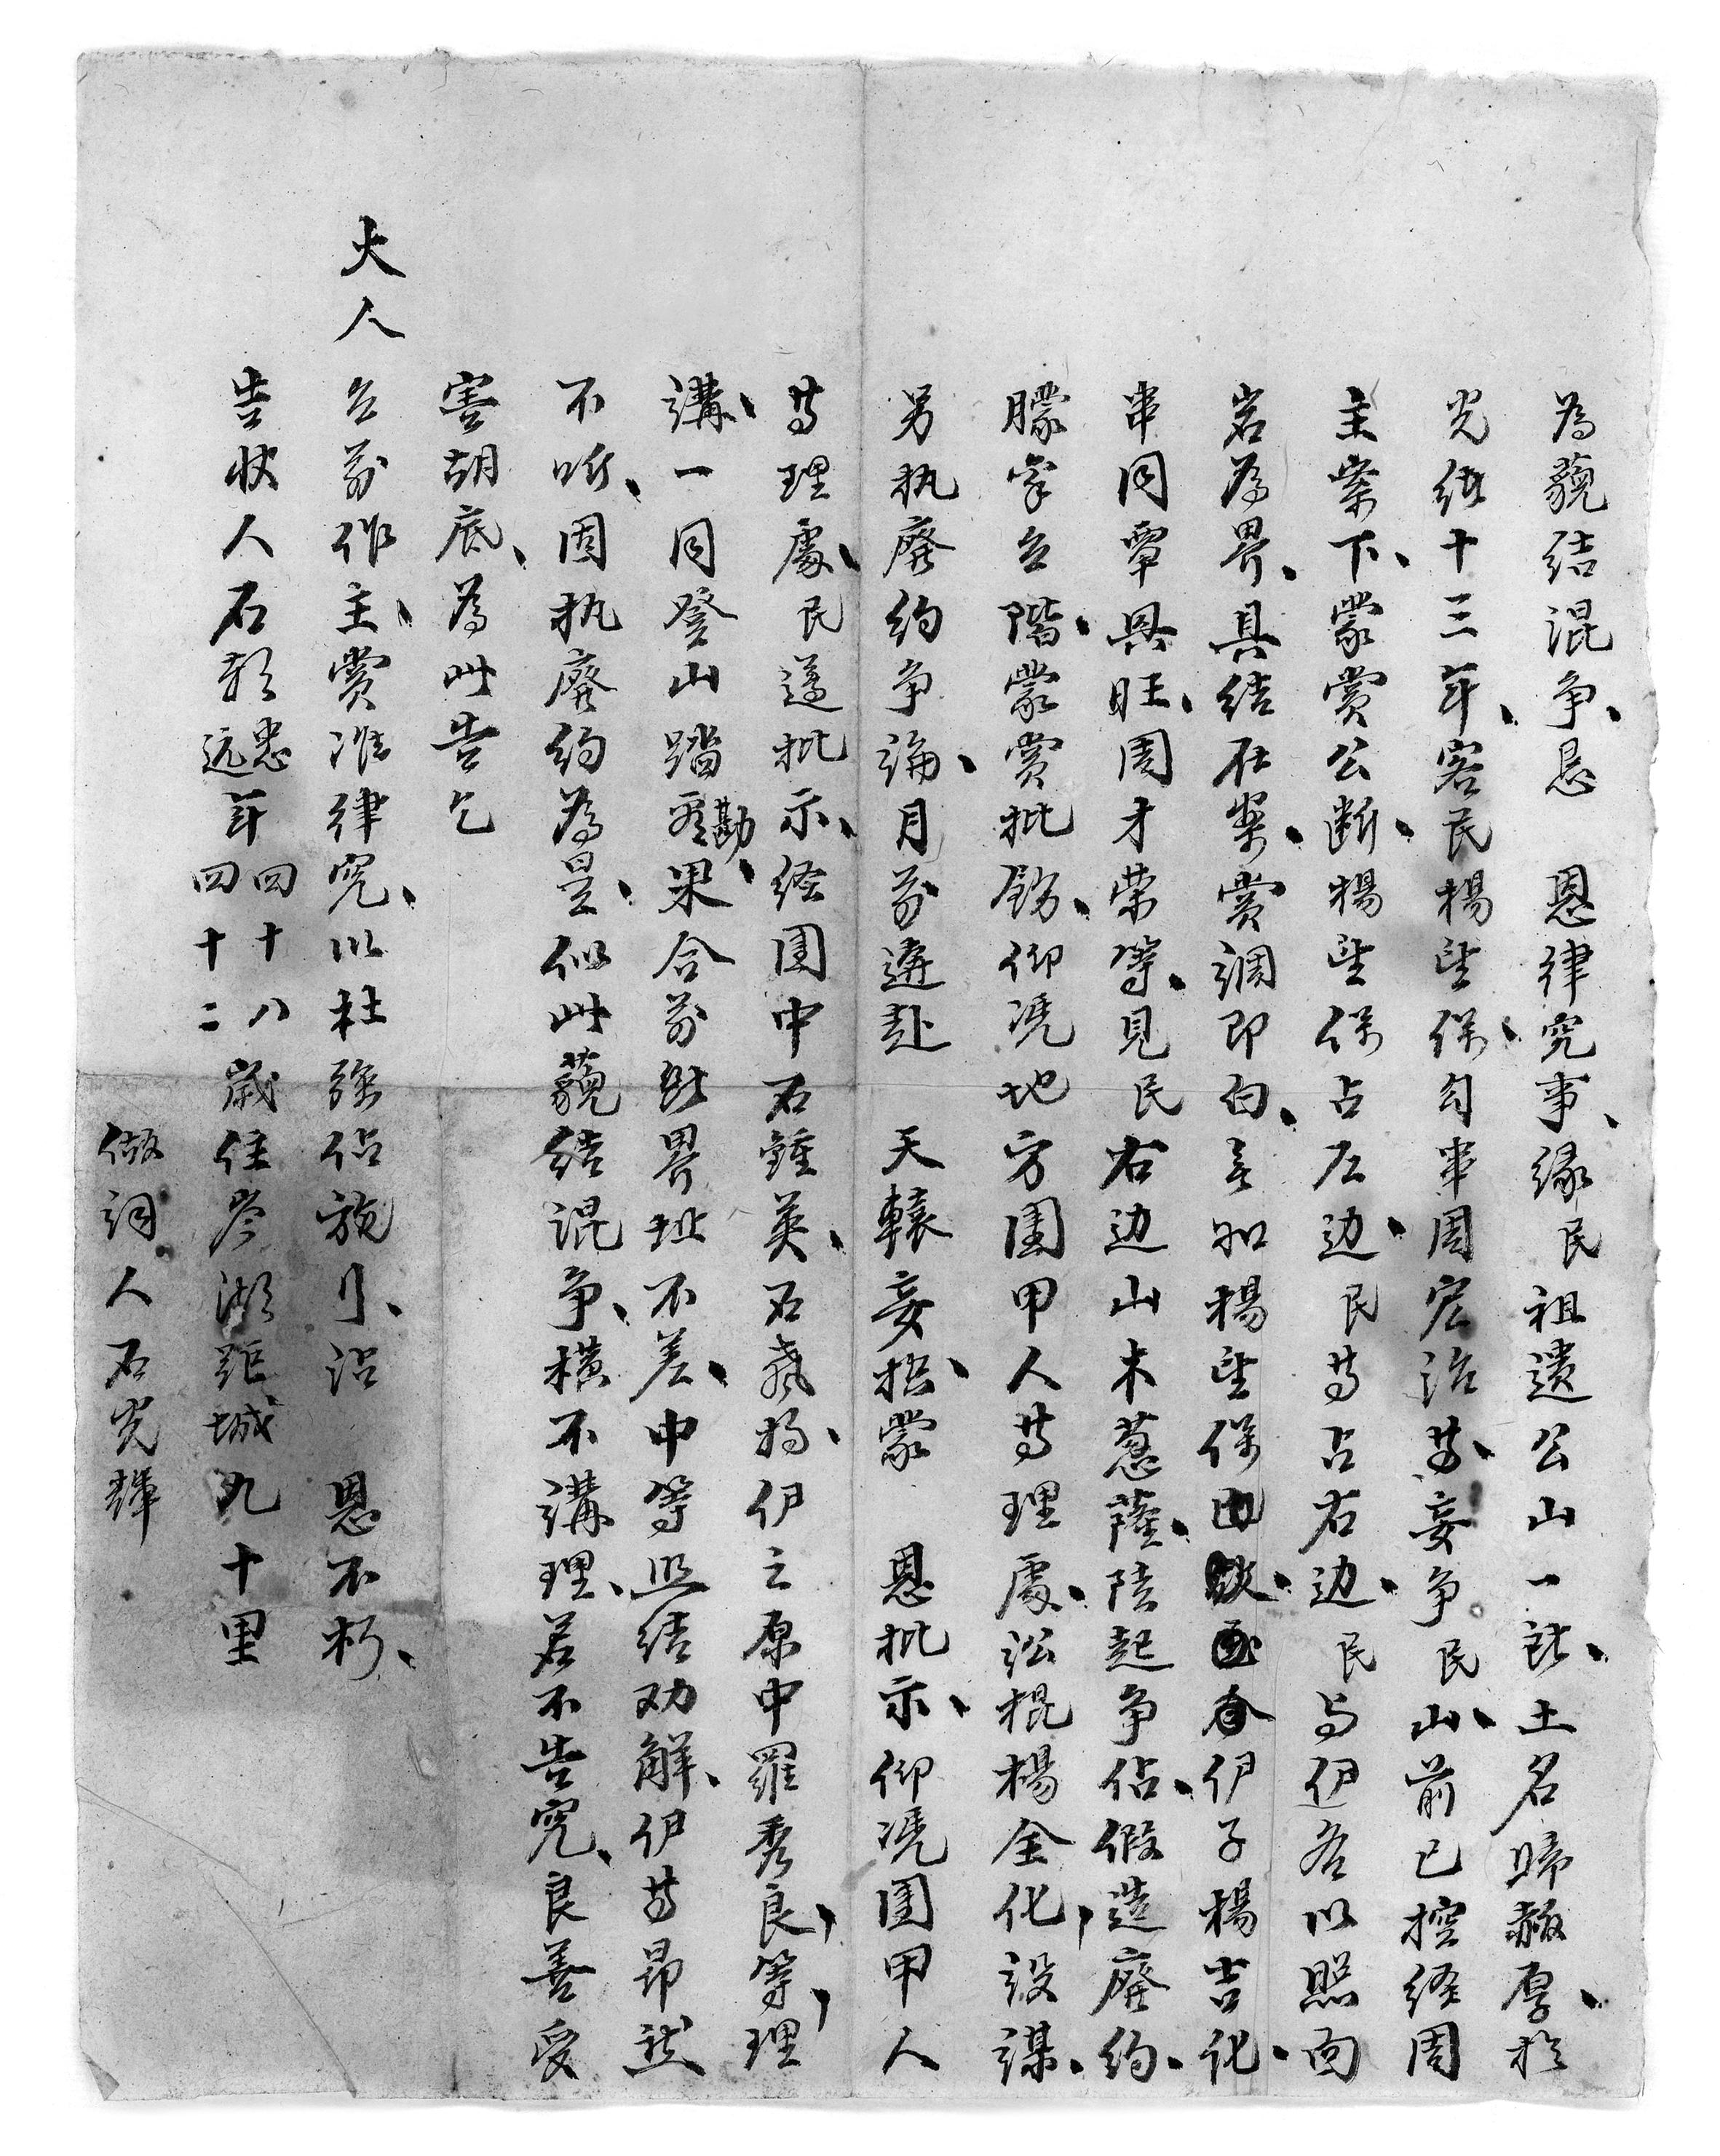 為藐結混争、恳　恩律究事、缘民祖遗公山一所、土名歸赧厚、於
光绪十三年、客民楊望保、勾串周宏治等、妄争民山、前已控经周
主案下、蒙赏公断、楊望保占左边、民等占右边、民与伊各以照面
岩為界、具结在案、赏調即白、无知楊望保由伊子楊吉化、
串同覃具旺、周才荣等、見民右边山木葱蕯、陸起争佔、假造廢约、
朦掌台階、蒙赏批飭、仰凭地方团甲人等理處、訟棍楊全化、設謀、
另执廢约争論、月前遶赴　天轅妄控、蒙　恩批示、仰凭团甲人
等理處、民遂批示、经团中石鍾英、石成揚、伊之原中羅秀良、等、理
講、一同登山踏看勘、果合前断界址不差、中等照结劝解、伊等昂然
不听、固执廢约為昰、似此藐结混争、横不講理、若不告究、良善受
害胡底、為此告乞
大人台前作主、赏准律究、以杜强佔、施行、沾　恩不朽、
告状人石彰忠远年四十八四十二歲住岑湖距城九十里
做词人石光輝